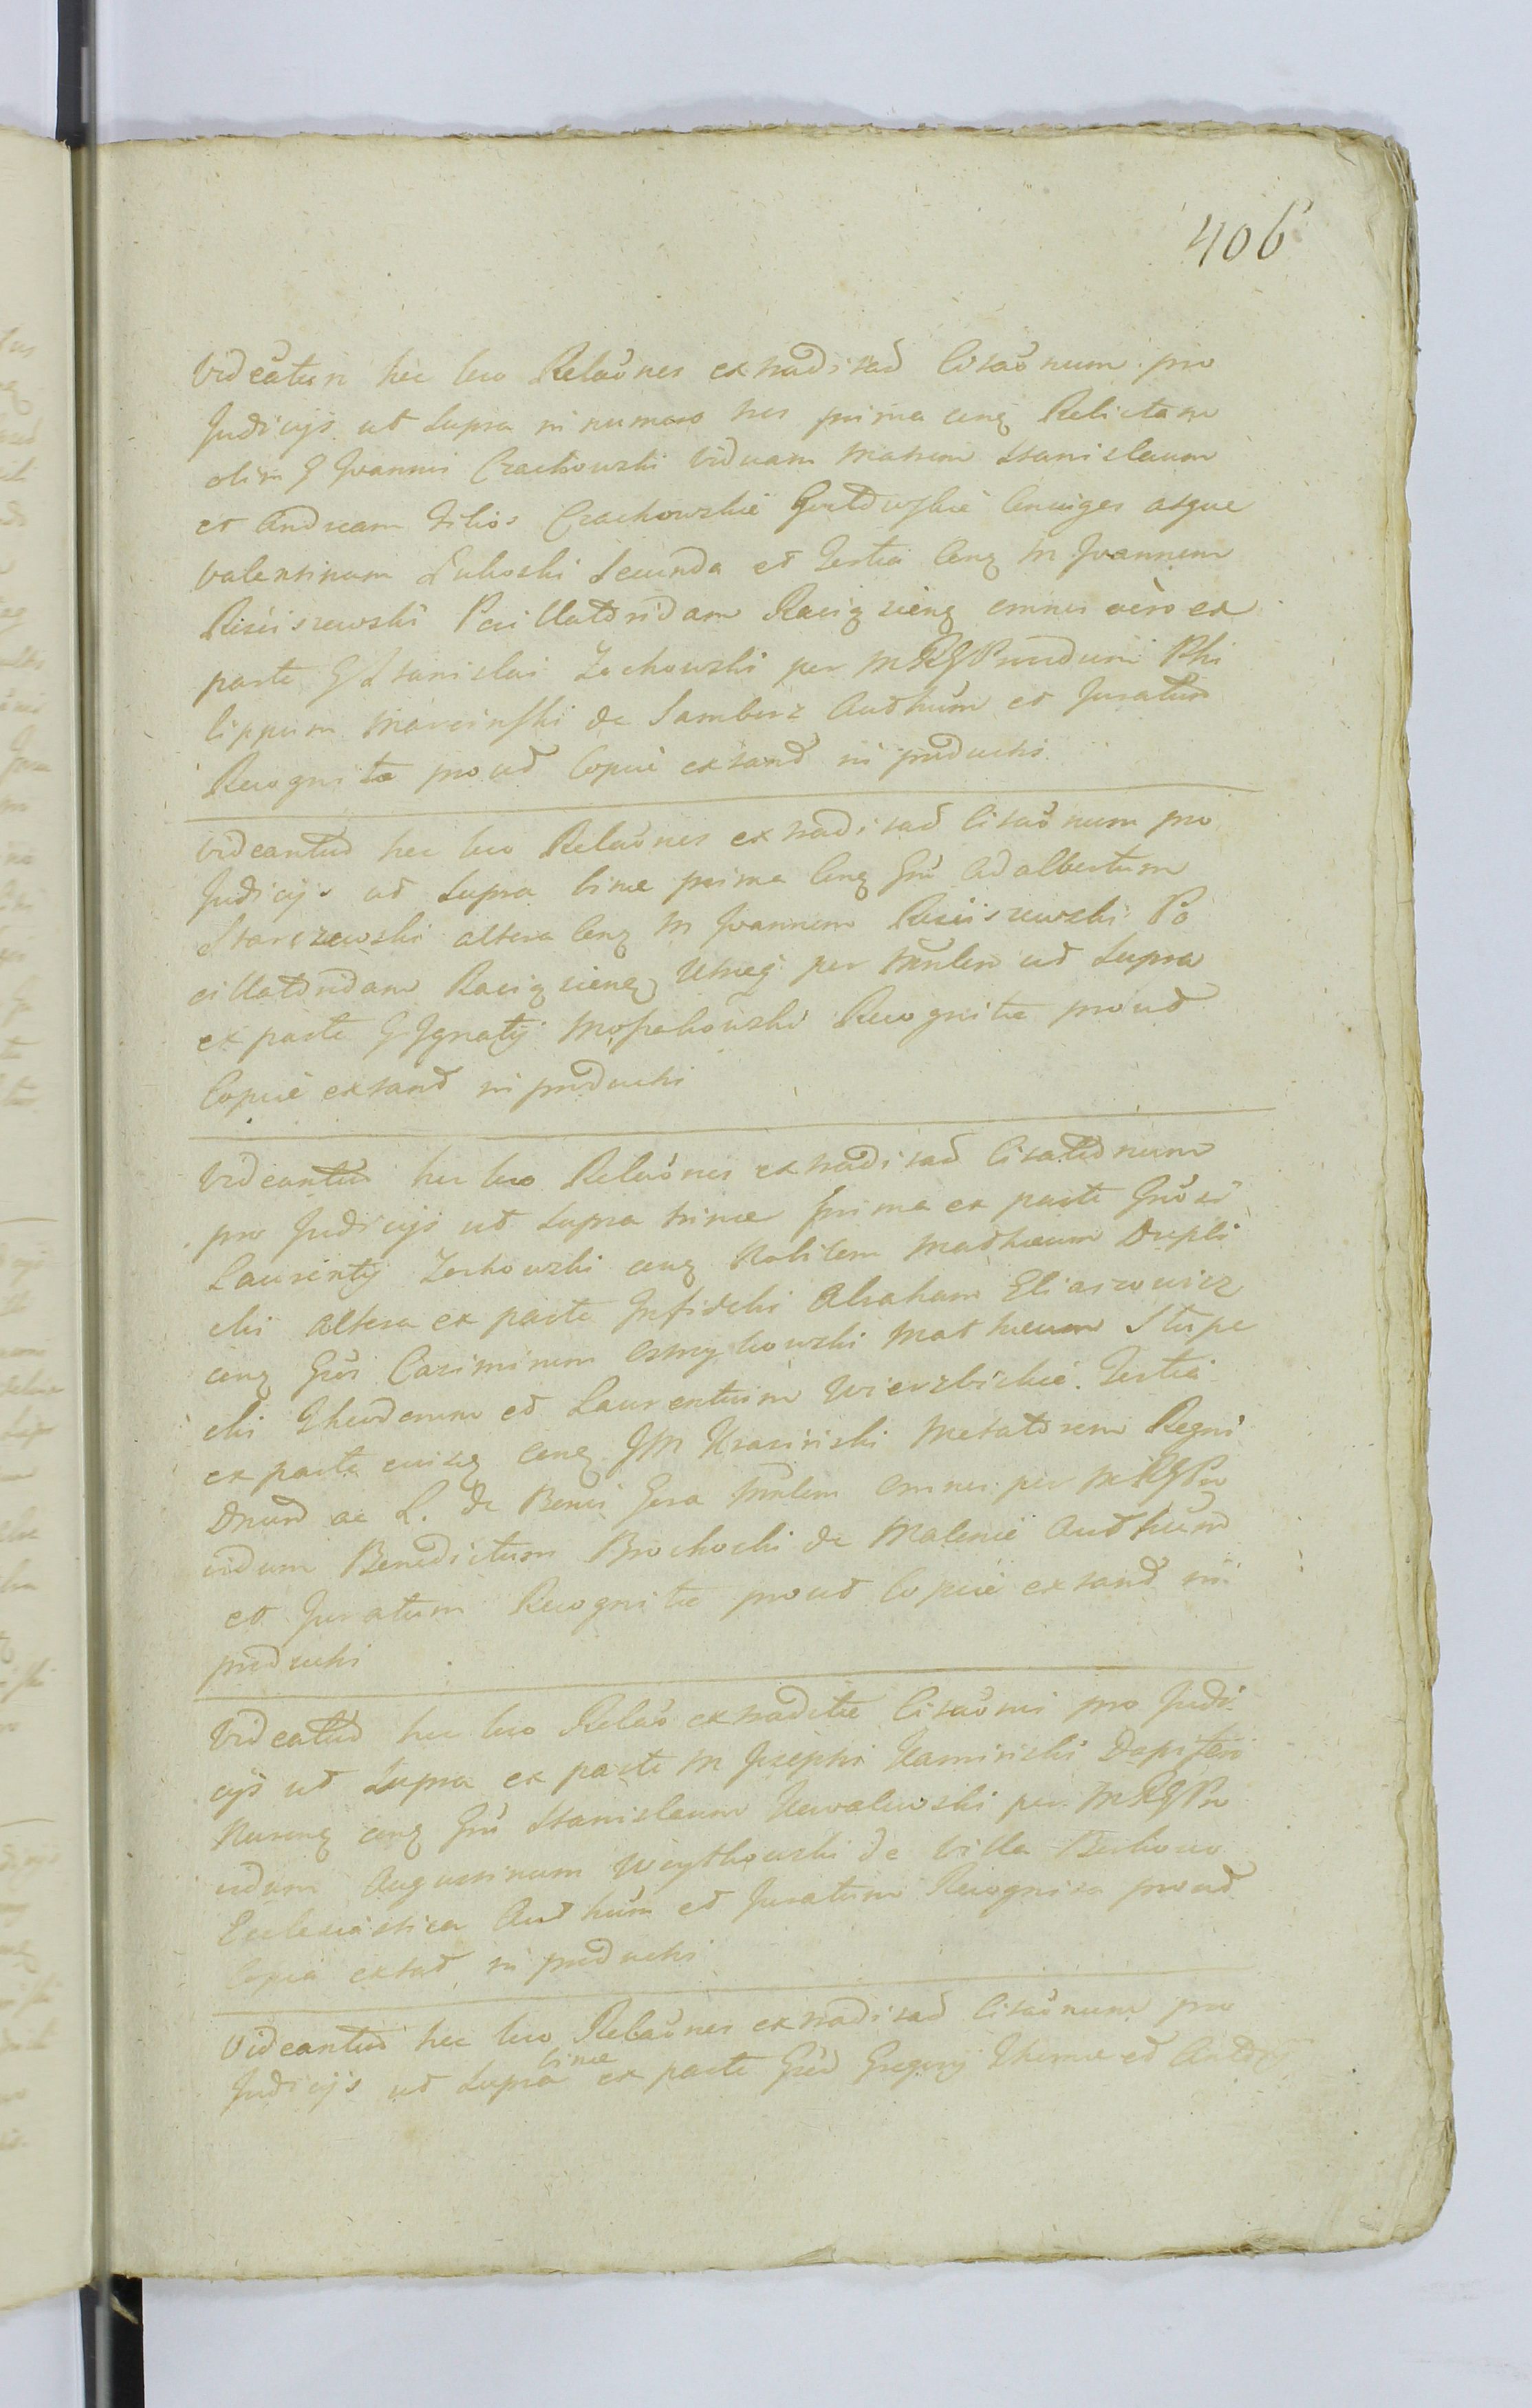 406
Videatur hec loco Relaones extradi tad Citaonum pro
Judicijs ut supra in numero tres prima cong Relictam
olim G Joannis Crachowski viduam matrem Stanislaum
et Andream filios Crachowskie conuiges atque
Valentinum Lukoski Secunda et Tertia Cong M Joannem
Risciszewski Pocillatoridam Racigzieng omnes vero ex
parte G Stanislai Zochowski per MRGPrudum Phi
lippum Marcinski de Samborz Authum et Juratum
Recognita prout Copiae extand in productis
Videantur hec loco Relaones extradi tad Citaonum pro
Judicijs ut supra binae prima Cong Gru Adalbertum
Starczewski altera Cong M Joannem Risciszewski Po
cillatoridam Racigzieng Utraq per Mnlem ut supra
ex parte G Ignatij Recognitae prout
Copiae extand in productis
Videantur hec loco Relaones extradi tad Citationum
pro Judicijs ut supra trinae prima ex parte Grosi
Laurentij Zochowski cong Nobilem Mathaeum Dupli
cki altera ex parte Infidelis Abrahami Eliaszowicz
cong Gros Casimirum Mathaeum Stupe
cki Theodorum et Laurentium Wierzbickie. Tertia
ex parte eiusq cong JM Krasinski Metatorem Regni
Dnum ac L. de Bonis Gora Mnlem omnes per MRGPro
vidum Benedictum Brochocki de Malenie Authum
et Juratum Recognitae prout Copiae extand in
productis
Videatur hec loco Relao extraditae Citaonis pro Judi
cijs ut supra ex parte M Josephi Kaminski Dapiferi
Nureng cong Gru Stanislaum Kowalewski per MRGPro
vidum Augustinum Woytkowski de Villa
Ecclesiastica Authum et Juratum Recognita prout
Copia extat in productis
Videantur hec loco Relaones extradi tad Citaonum pro
Judicijs ut supra binae ex parte Gru Gregorij Thomae et